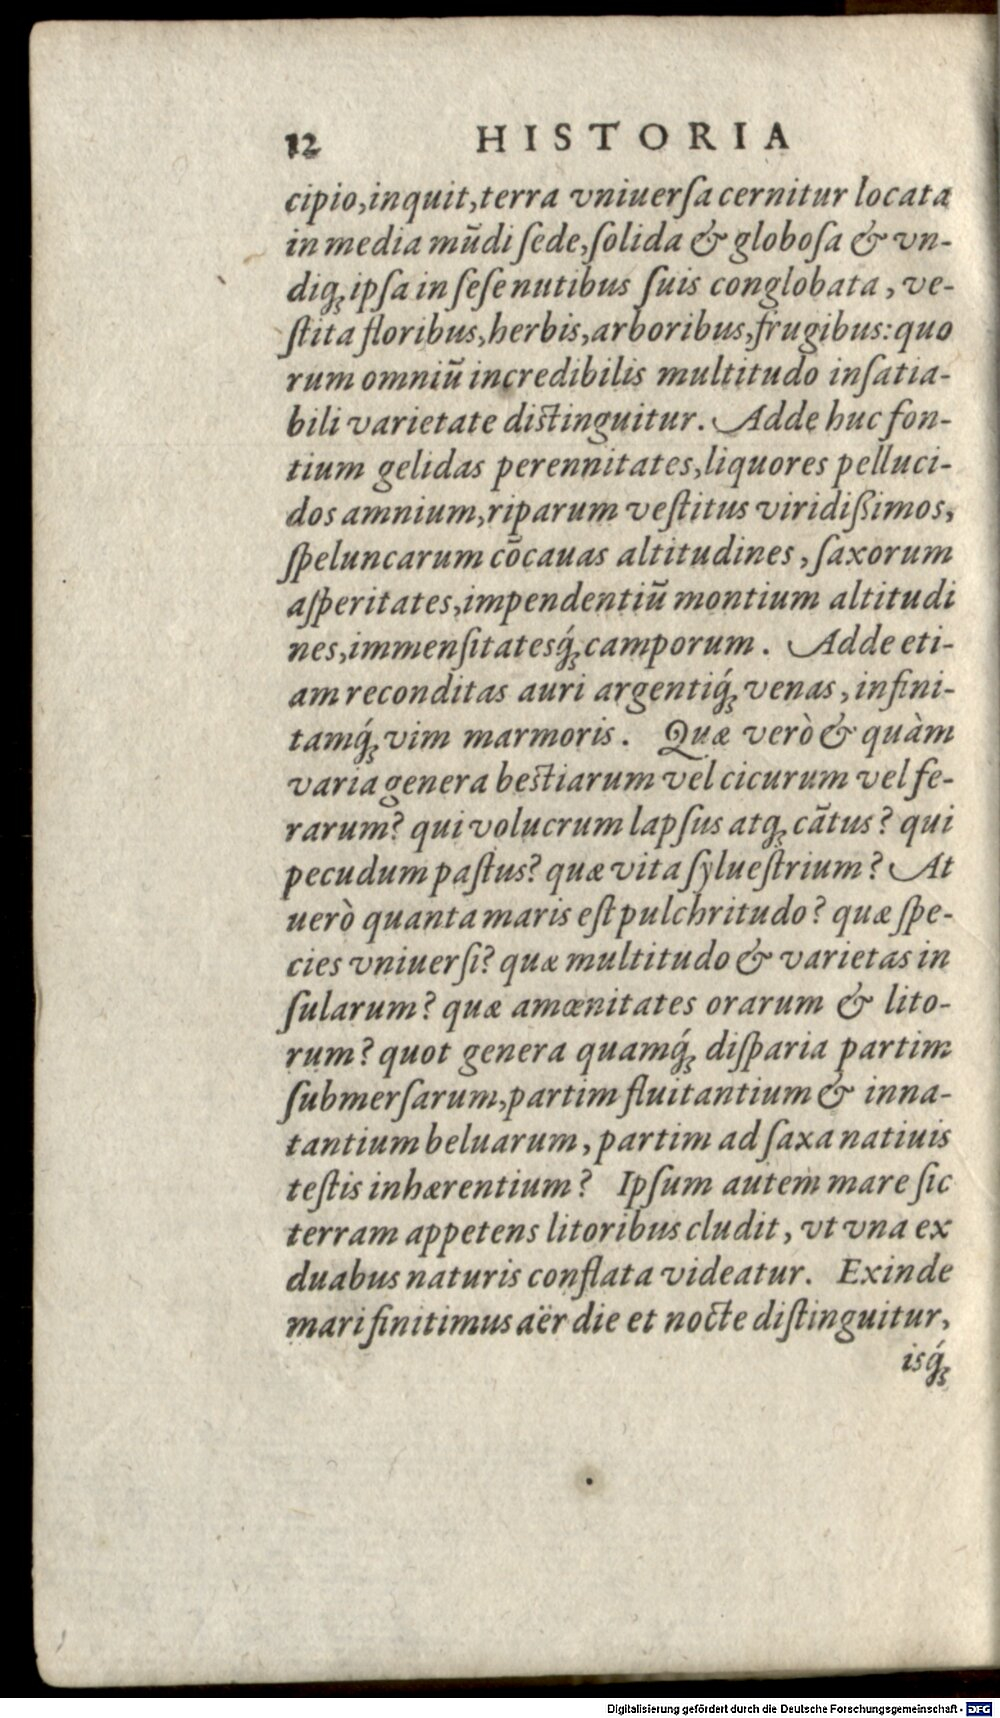 12 HISTORIA
cipio, inquit, terra vniuerſa cernitur locata
in media mūdi ſede, ſolida & globoſa & vn-
diq; ipſa in ſeſe nutibus ſuis conglobata, ve-
ſtita floribus, herbis, arboribus, frugibus: quo
rum omniū incredibilis multitudo inſatia-
bili varietate diſtinguitur. Adde huc fon-
tium gelidas perennitates, liquores pelluci-
dos amnium, riparum veſtitus viridißimos,
ſpeluncarum cōcauas altitudines, ſaxorum
aſperitates, impendentiū montium altitudi
nes, immenſitatesq́; camporum. Adde eti-
am reconditas auri argentiq́; venas, infini-
tamq́; vim marmoris. Quæ verò & quàm
varia genera beſtiarum vel cicurum vel fe-
rarum? qui volucrum lapſus atq; cātus? qui
pecudum paſtus? quæ vita ſylueſtrium? At
uerò quanta maris eſt pulchritudo? quæ ſpe-
cies vniuerſi? quæ multitudo & varietas in
ſularum? quæ amœnitates orarum & lito-
rum? quot genera quamq́; diſparia partim
ſubmerſarum, partim fluitantium & inna-
tantium beluarum, partim ad ſaxa natiuis
teſtis inhærentium? Ipſum autem mare ſic
terram appetens litoribus cludit, vt vna ex
duabus naturis conflata videatur. Exinde
mari finitimus aër die et nocte diſtinguitur,
isq́;
Digitalisierung gefördert durch die Deutsche Forschungsgemeinschaft - DFG